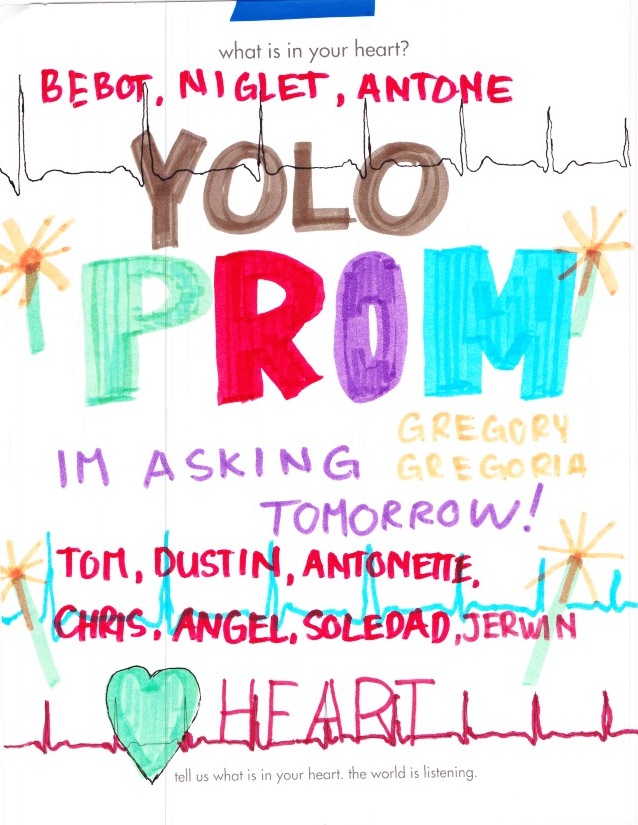 what is in your heart?
BEBOT, NIGLET, ANTONE
YOLO
PROM
GREGORY
IM ASKING GREGORIA
TOMORROW!
TOM, DUSTIN, ANTONETTE,
CHRIS, ANGEL, SOLEDAD, JERWIN
HEART
tell us what is in your heart. the world is listening.